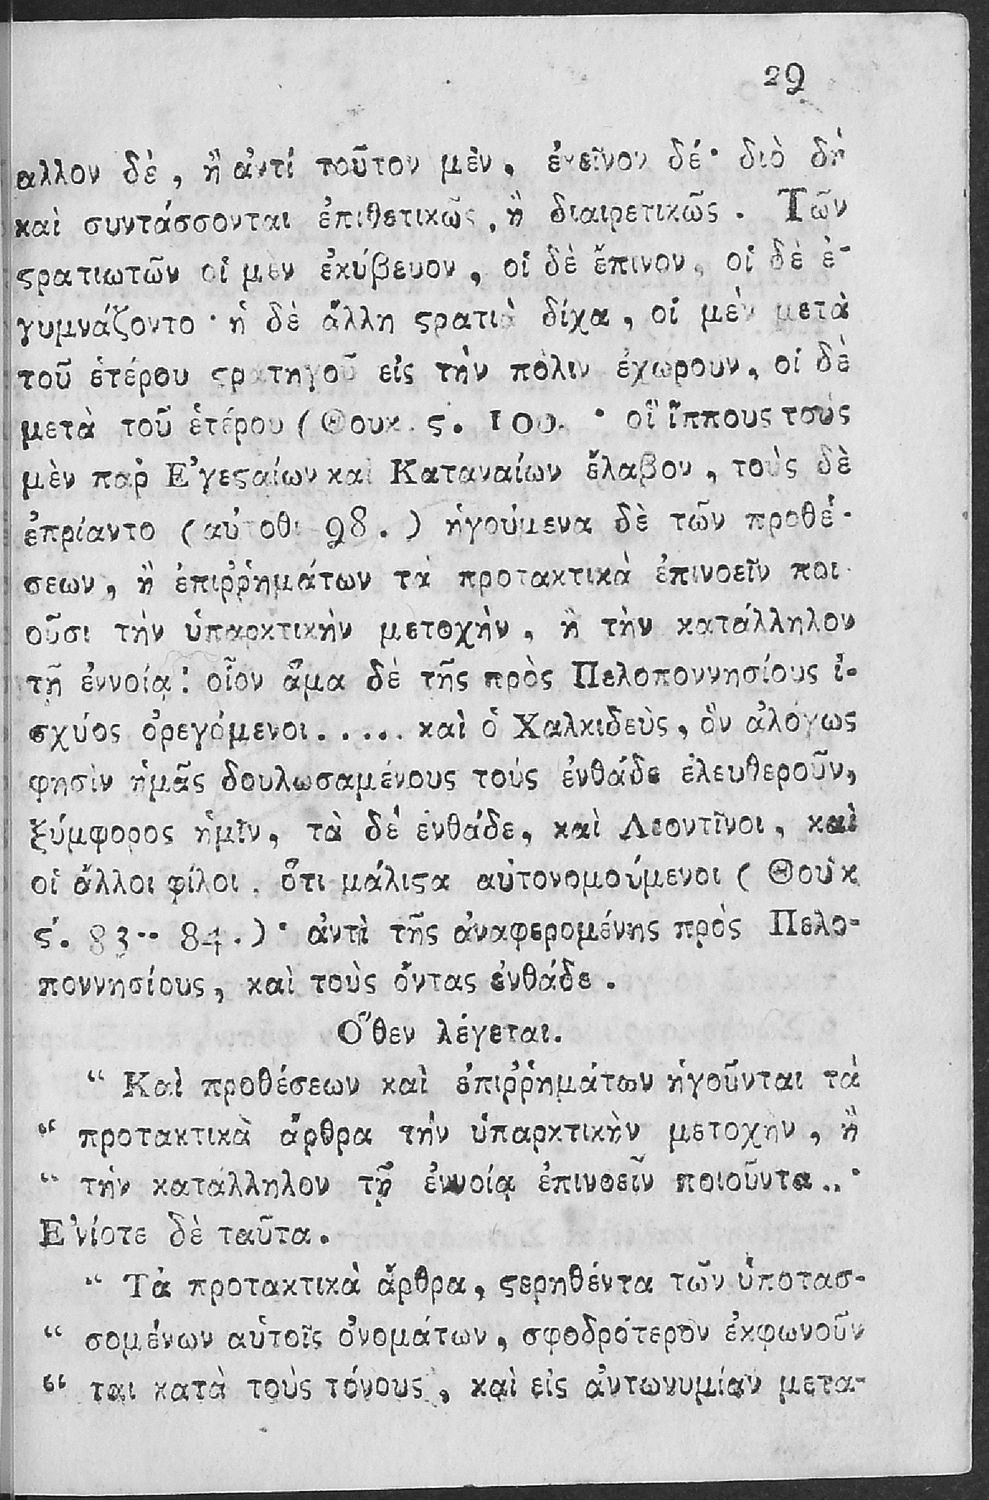 29
αλλον δὲ, ἢ ἀντὶ τοῦτον μὲν, ἐκεῖνον δέ· διὸ δὴ
καὶ συντάσσονται ἐπιθετικῶς, ἢ διαιρετικῶς. Τῶν
ϛρατιωτῶν οἱ μὲν ἐκύβευον, οἱ δὲ ἔπινον, οἱ δὲ ἐ-
γυμνάζοντο· ἡ δὲ ἄλλη ϛρατιὰ δίχα, οἱ μὲν μετὰ
τοῦ ἑτέρου ϛρατηγοῦ εἰς τὴν πόλιν ἐχώρουν, οἱ δὲ
μετὰ τοῦ ἑτέρου (Θουκ. ϛ. 100. · οἳ ἵππους τοὺς
μὲν παρ Ἐγεϛαίων καὶ Καταναίων ἔλαβον, τοὺς δὲ
ἐπρίαντο (αὐτοθι 98.) ἡγούμενα δὲ τῶν προθέ-
σεων, ἢ ἐπιῤῥημάτων τὰ προτακτικὰ ἐπινοεῖν ποι-
οῦσι τὴν ὑπαρκτικὴν μετοχὴν, ἢ τὴν κατάλληλον
τῇ ἐννοίᾳ: οἷον ἅμα δὲ τῆς πρὸς Πελοποννησίους ἰ-
σχύος ὀρεγόμενοι..... καὶ ὁ Χαλκιδεὺς, ὃν ἀλόγως
φησὶν ἡμᾶς δουλωσαμένους τοὺς ἐνθάδε ἐλευθεροῦν,
ξύμφορος ἡμῖν, τὰ δέ ἐνθάδε, καὶ Λεοντῖνοι, καὶ
οἱ ἄλλοι φίλοι. ὅτι μάλιϛα αὐτονομούμενοι (Θουκ
ϛ. 83-- 84.)· ἀντὶ τῆς ἀναφερομένης πρὸς Πελο-
ποννησίους, καὶ τοὺς ὄντας ἐνθάδε.
Ὅθεν λέγεται.
“ Καὶ προθέσεων καὶ ἐπιῤῥημάτων ἡγοῦνται τὰ
“ προτακτικὰ ἄρθρα τὴν ὑπαρκτικὴν μετοχὴν, ἢ
“ τὴν κατάλληλον τῇ ἐννοίᾳ ἐπινοεῖν ποιοῦντα..·
Ἐνίοτε δὲ ταῦτα.
“ Τὰ προτακτικὰ ἄρθρα, ϛερηθέντα τῶν ὑποτασ-
“ σομένων αὐτοῖς ὀνομάτων, σφοδρότερον ἐκφωνοῦν
“ ται κατὰ τοὺς τόνους, καὶ εἰς ἀντωνυμίαν μετα-